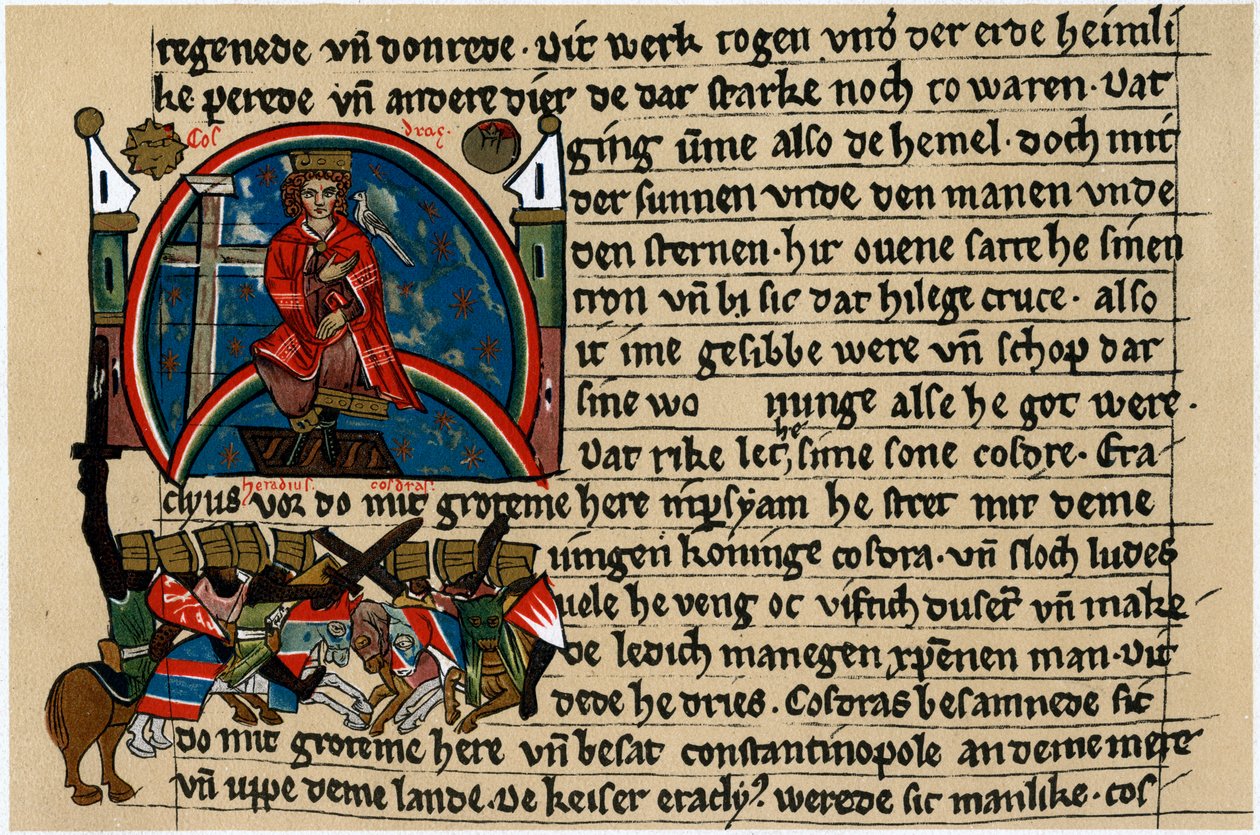 regenede vn̄ donrede · Dit werk togen vnd' der erde heimli
ke perede vn̄ andere dier de dar starke noch to waren · Dat
Cos dras.
ging v̄me also de hemel · doch mit
der sunnen vnde den manen vnde
den sternen · hir ovene satte he sinen
tron vn̄ bi sic dat hilege cruce · also
it ime gesibbe were vn̄ schop dar
sine wo nunge alse he got were ·
Dat rike let he sime sone cosdre · Era-
heraclius. cosdras.
clyus vor do mit groteme here in p̄syam he stret mit deme
iungen koninge cosdra · vn̄ sloch ludes
uele he veng oc viftich dusēt vn̄ make
de ledich manegen xp̄enen man · Dit
dede he dries · Cosdras besamnede sic
do mit groteme here vn̄ besat constantinopole an deme mere
vn̄ uppe deme lande · De keiser eraclyꝰ werede sic manlike · cos